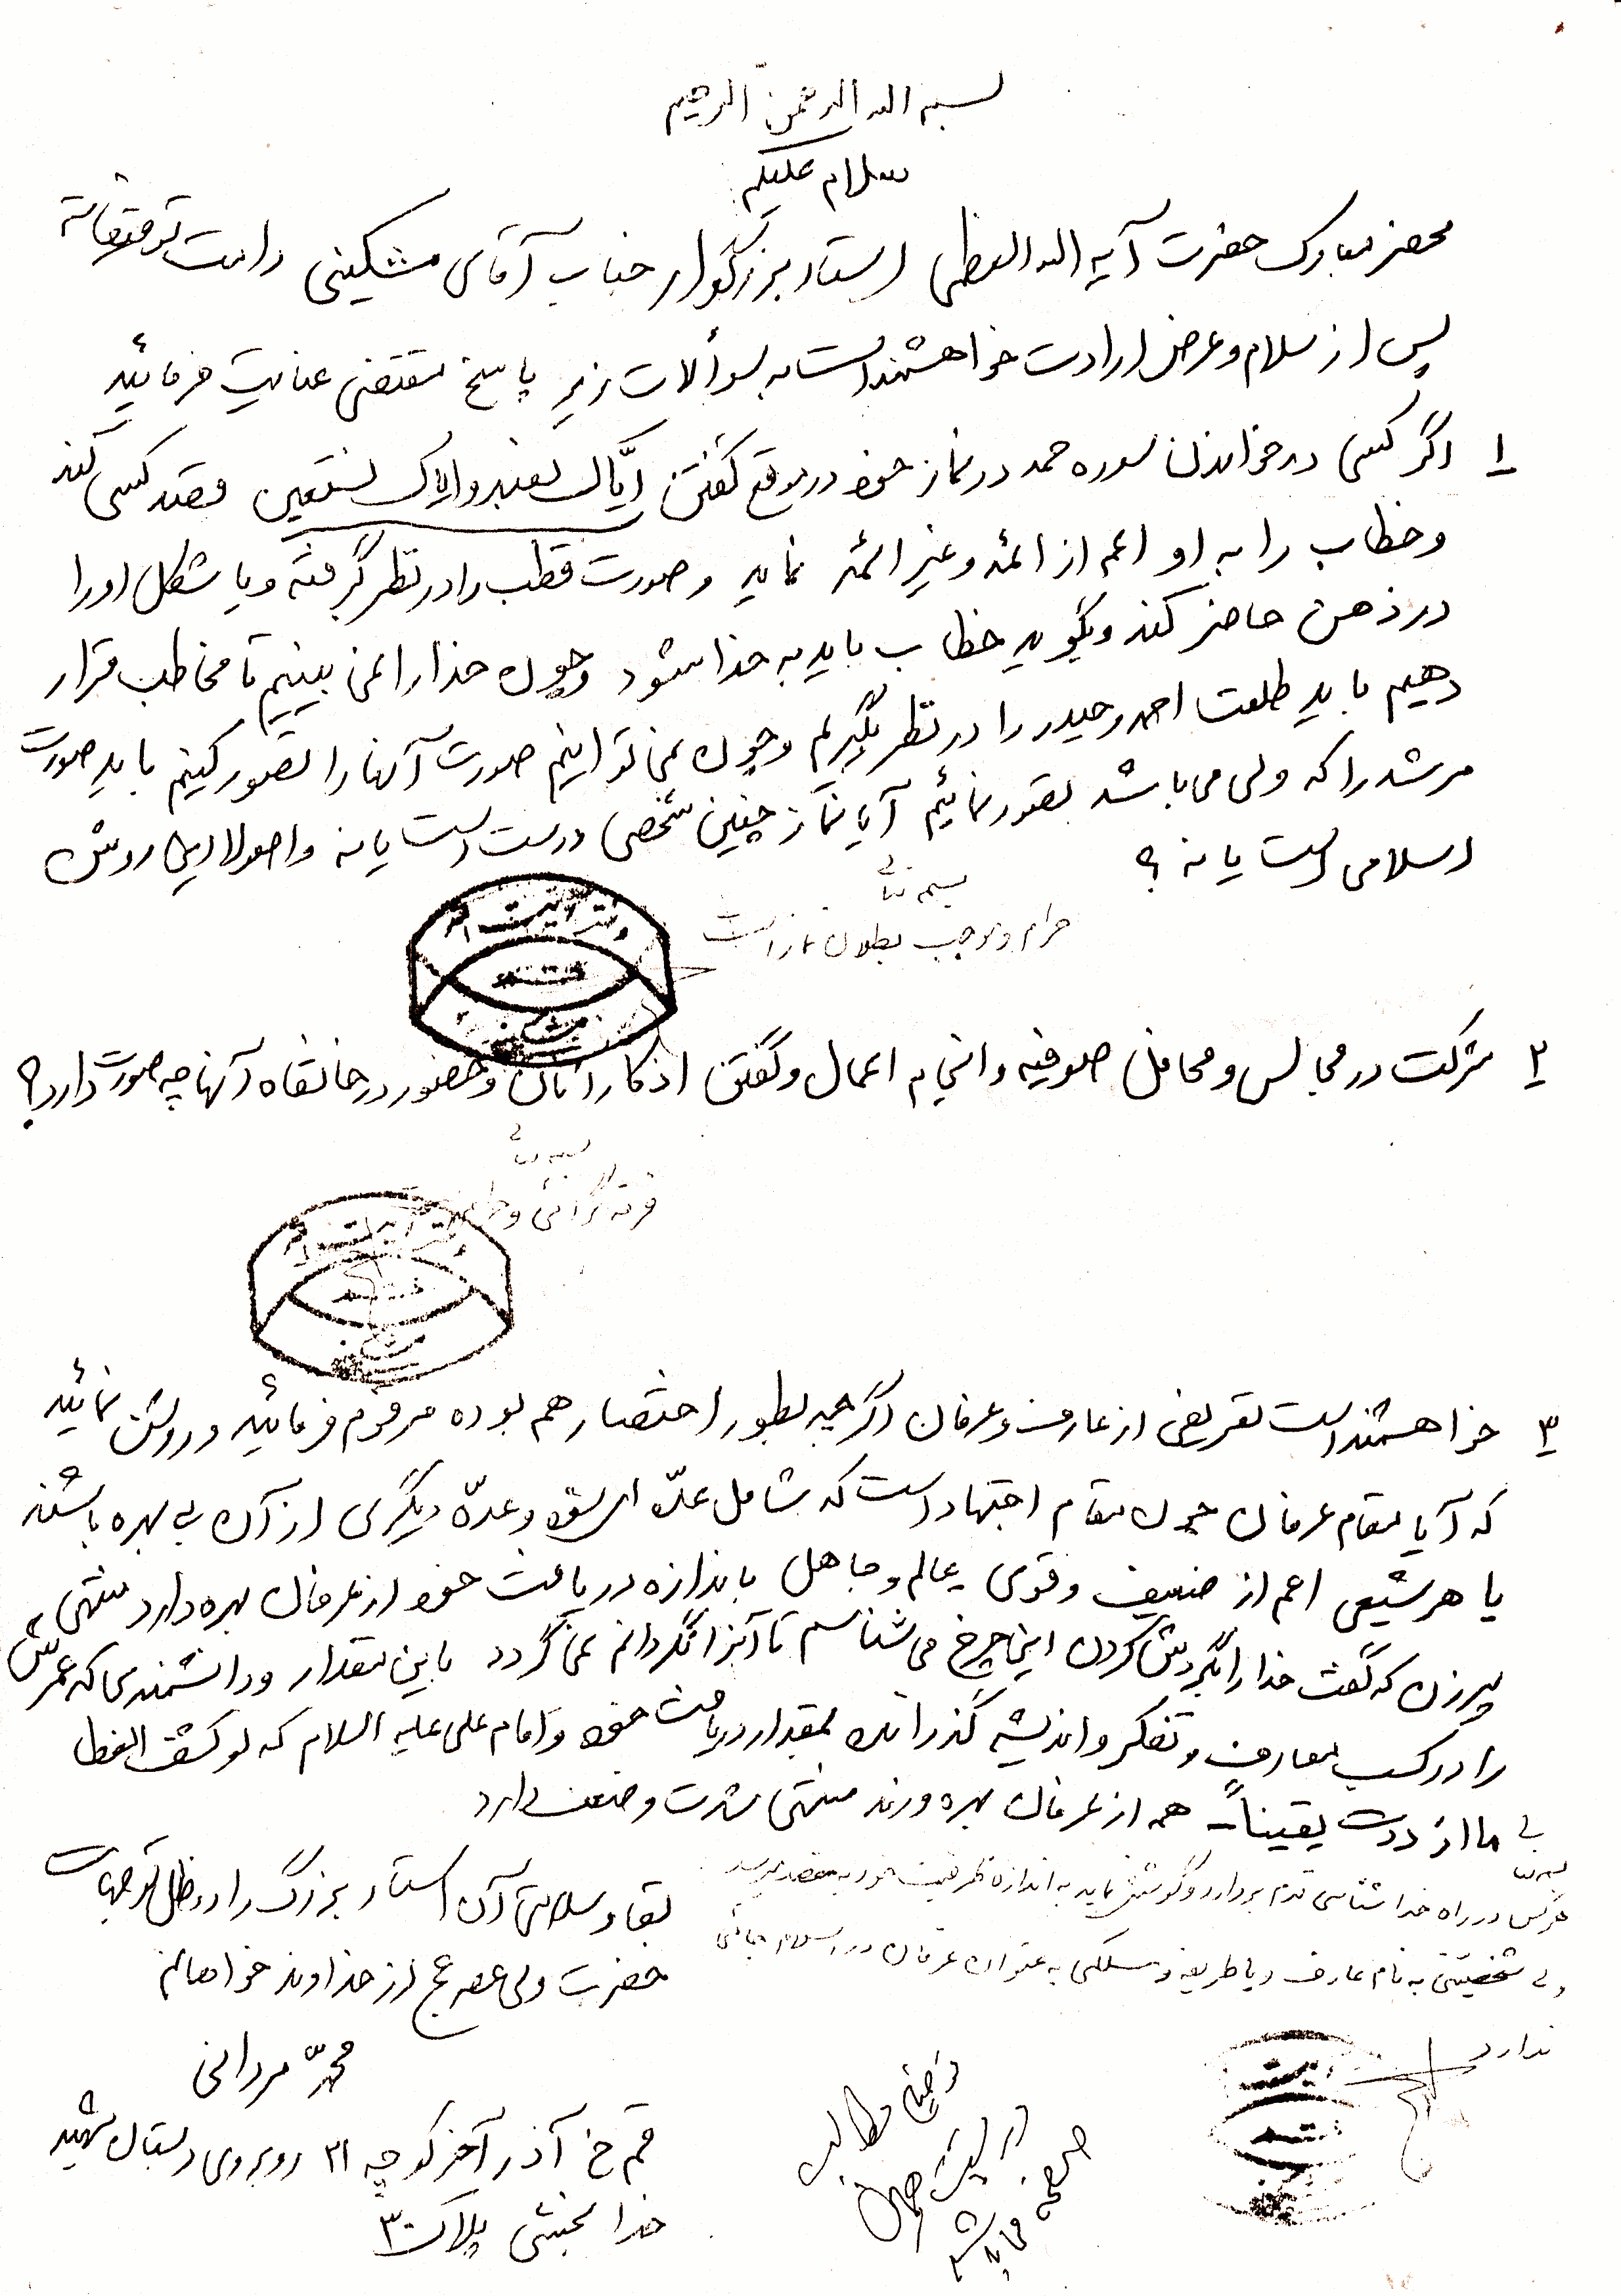 بسمه الله الرحمن الرحیم
سلام علیکم
محضر مبارک حضرت آیه الله العظمی استاد بزرگوار جناب آقای مشکینی دامت توفیقاته
پس از سلام و عرض ارادت خواهشمند است به سؤالات زیر پاسخ مقتضی عنایت فرمائید
۱ اگر کسی در خواندن سوره حمد در نماز خود در موقع گفتن ایّاک نعبد و ایاک نستعین قصد کسی کند
و خطاب را به او اعم از ائمه و غیر ائمه نماید و صورت قطب را در نظر گرفته و یا شکل او را
در ذهن حاضر کند و بگوید خطاب باید به خدا شود و چون خدا را نمی بینیم تا مخاطب قرار
دهیم باید طلعت احمد و حیدر را در نظر بگیریم و چون نمی توانیم صورت آنها را تصور کنیم باید صورت
مرشد را که ولی می باشد تصور نمائیم آیا نماز چنین شخصی درست است یا نه و اصولا این روش
اسلامی است یا نه ؟
بسمه تعالی
حرام و موجب بطلان نماز است
۲ شرکت در مجالس و محافل صوفیه و انجام اعمال و گفتن اذکار آنان و حضور در خانقاه آنها چه صورت دارد؟
بسمه تعالی
فرقه گرائی و
۳ خواهشمند است تعریفی از عارف و عرفان اگر چه بطور اختصار هم بوده مرقوم فرمائید و روشن نمائید
که آیا مقام عرفان چون مقام اجتهاد است که شامل عدّه ای بشود و عدّه دیگری از آن بی بهره باشند
یا هر شیعی اعم از ضعیف و قوی عالم و جاهل باندازه دریافت خود از عرفان بهره دارد منتهی
پیرزن که گفت خدا را بگردش کردن این چرخ می شناسم تا آنرا نگردانم نمی گردد باین مقدار و دانشمندی که عمرش
را در کسب معارف و تفکر و اندیشه گذرانده بمقدار دریافت خود و امام علی علیه السلام که لو کشف الغطا
ما ازددت یقیناً - همه از عرفان بهره ورند منتهی شدت و ضعف دارد
بسمه تعالی
هر کس در راه خدا شناسی قدم بردارد و کوشش نماید به اندازه ظرفیت خود به مقصد میرسد
ولی شخصیتی به نام عارف و یا طریقه و مسلکی به عنوان عرفان در اسلام جائی
ندارد
بقا و سلامتی آن استاد بزرگ را در ظل توجهات
حضرت ولی عصر عج از خداوند خواهانم
محمّد مردانی
قم خ آذر آخر کوچه ۳۱ روبروی دبستان شهید
خدابخشی پلاک ۳۰
توضیح مطالب
در پشت همان
صفحه می باشد